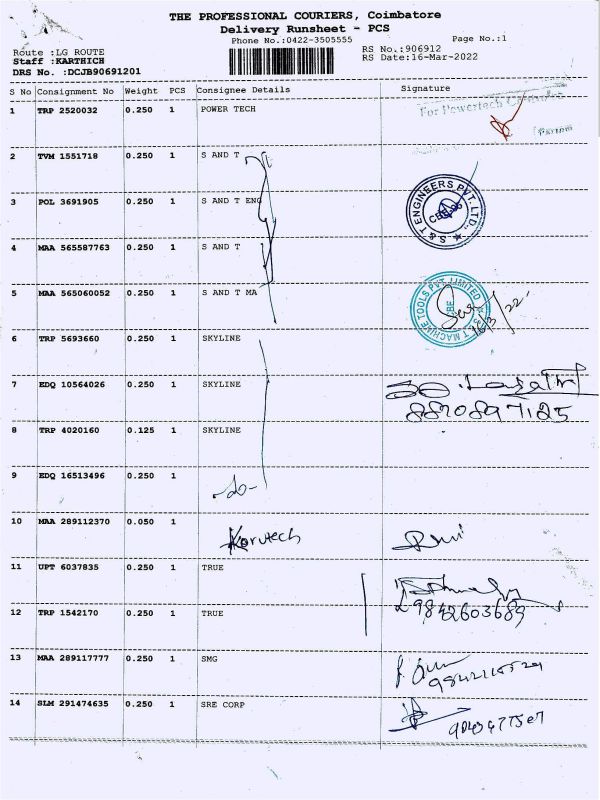 THE PROFESSIONAL COURIERS, Coimbatore
Delivery Runsheet - PCS
Phone No.:0422-3505555
Page No.:1
Route :LG ROUTE
RS No.:906912
Staff :KARTHICH
RS Date:16-Mar-2022
DRS No. :DCJB90691201
S No Consignment No Weight PCS Consignee Details Signature
1 TRP 2520032 0.250 1 POWER TECH
For Powertech
2 TVM 1551718 0.250 1 S AND T
3 POL 3691905 0.250 1 S AND T ENG
S & T ENGINEERS PVT. LTD.,
4 MAA 565587763 0.250 1 S AND T
5 MAA 565060052 0.250 1 S AND T MA
S & T MACHINE TOOLS PVT. LIMITED
16/3/22
6 TRP 5693660 0.250 1 SKYLINE
7 EDQ 10564026 0.250 1 SKYLINE
8820897125
8 TRP 4020160 0.125 1 SKYLINE
9 EDQ 16513496 0.250 1 -do-
10 MAA 289112370 0.050 1 Korutech
11 UPT 6037835 0.250 1 TRUE
9842603689
12 TRP 1542170 0.250 1 TRUE
13 MAA 289117777 0.250 1 SMG
14 SLM 291474635 0.250 1 SRE CORP